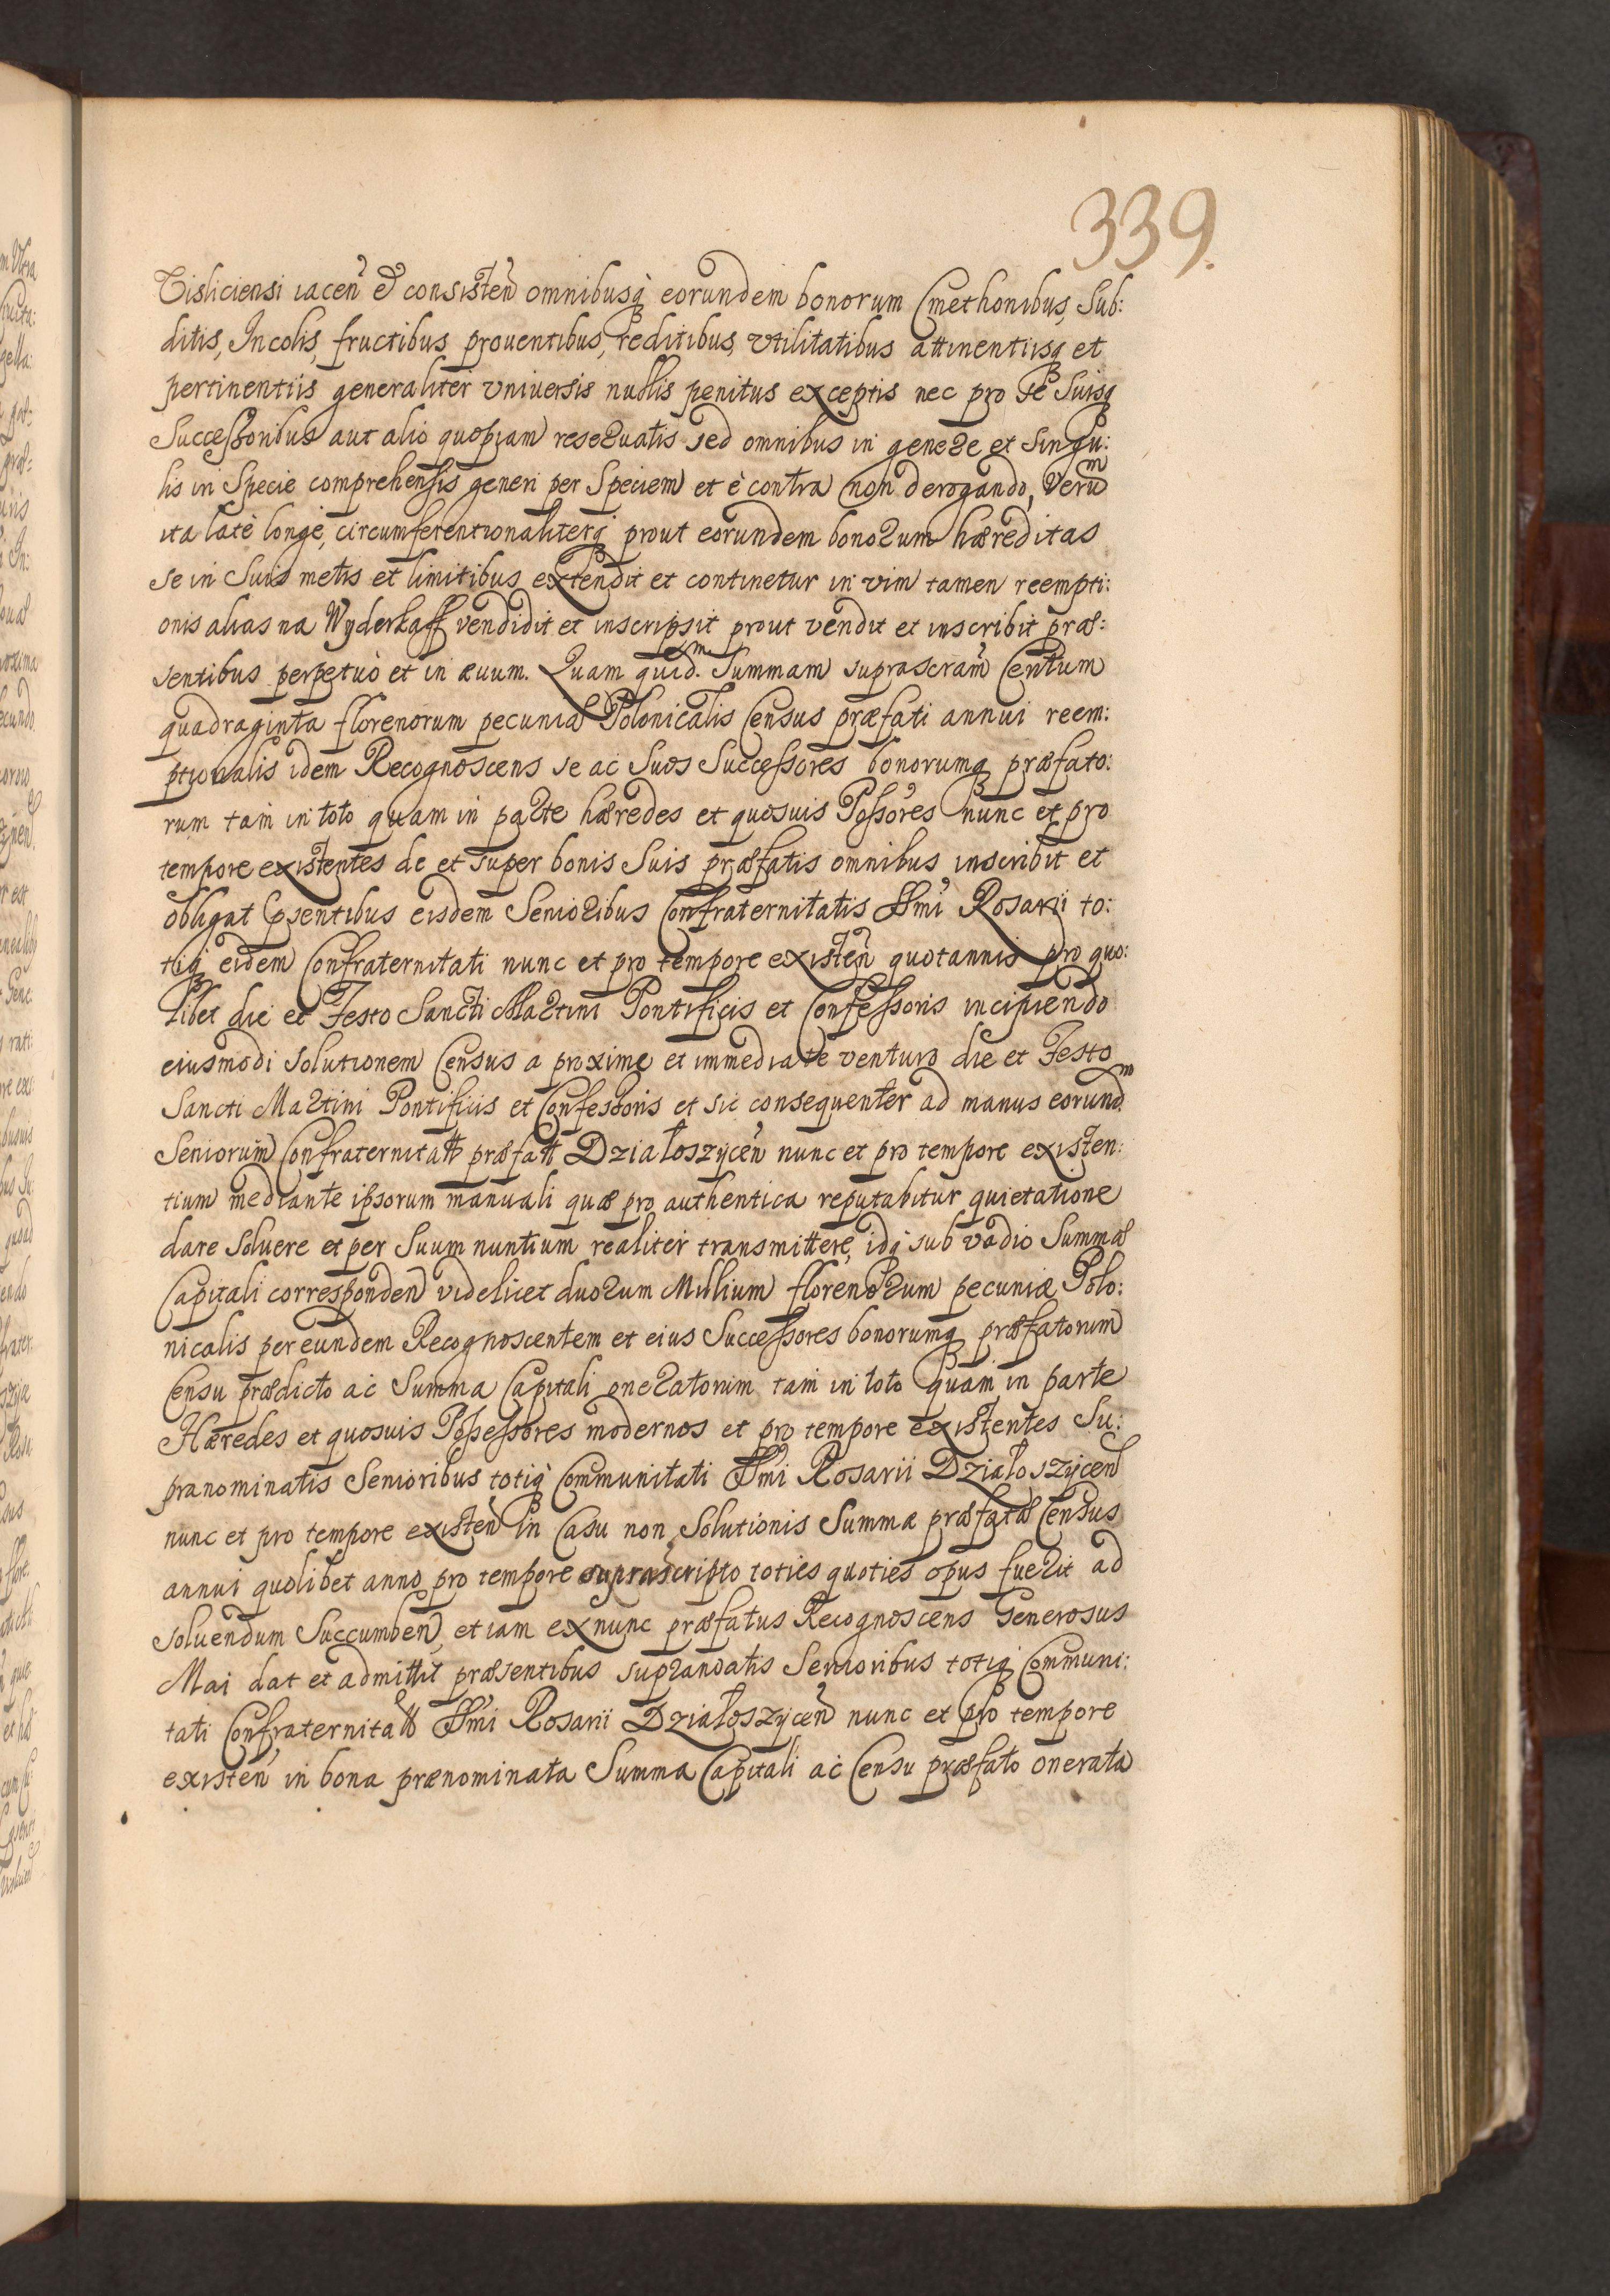 339.
Visliciensi iacen̄ et consisten̄ omnibusq̀ eorundem bonorum Cmethonibus, Sub:
ditis, Incolis, fructibus prouentibus, reditibus, vtilitatibus attinentiisq et
pertinentiis generaliter vniuersis nullis penitus exceptis nec pro se Suisq
Successoribus aut alio quopiam reseruatis sed omnibus in genere et Singu:
lis in Specie comprehensis generi per Speciem et è contra non derogando, Verum
ita latè longè, circumferentionaliterq prout eorundem bonorum hæreditas
se in Suis metis et limitibus extendit et continetur in vim tamen reempti:
onis alias na Wyderkaff vendidit et inscripsit prout vendit et inscribit præ:
sentibus perpetuò et in æuum. Quam quidem Summam suprascram̄ Centum
quadraginta florenorum pecuniæ Polonicalis Census præfati annui reem:
ptionalis idem Recognoscens se ac Suos Successores bonorumq præfato:
rum tam in toto quam in parte hæredes et quosuis Possores nunc et pro
tempore existentes de et super bonis Suis præfatis omnibus inscribit et
obligat psentibus eisdem Senioribus Confraternitatis SSmi Rosarii to:
tiq eidem Confraternitati nunc et pro tempore existen̄ quotannis pro quo:
libet die et Festo Sancti Martini Pontificis et Confessoris incipiendo
eiusmodi solutionem Census a proxime et immediate venturo die et Festo
Sancti Martini Pontificis et Confessoris et sic consequenter ad manus eorundm
Seniorum Confraternitatt præfatt Działoszycen̄ nunc et pro tempore existen:
tium mediante ipsorum manuali quæ pro authentica reputabitur quietatione
dare soluere et per Suum nuntium realiter transmittere, idq̀ sub vadio Summæ
Capitali corresponden̄ videlicet duorum Millium florenorum pecuniæ Polo:
nicalis per eundem Recognoscentem et eius Successores bonorumq præfatorum
Censu prædicto ac Summa Capitali oneratorum tam in toto quam in parte
Hæredes et quosuis Possessores modernos et pro tempore existentes Su:
pranominatis Senioribus totiq̀ Communitati SSmi Rosarii Działoszycen̄
nunc et pro tempore existen̄ in Casu non Solutionis Summæ præfatæ Census
annui quolibet anno pro tempore suprascripto toties quoties opus fuerit ad
soluendum Succumben̄, et iam ex nunc præfatus Recognoscens Generosus
Mai dat et admittit præsentibus supranoatis Senioribus totiq Communi:
tati Confraternitatt SSmi Rosarii Działoszycen̄ nunc et pro tempore
existen̄ in bona prænominata Summa Capitali ac Censu præfato onerata